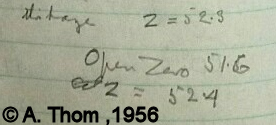 Z = 52.3
Open Zero 51.6
Z = 52.4
© A. Thom ,1956